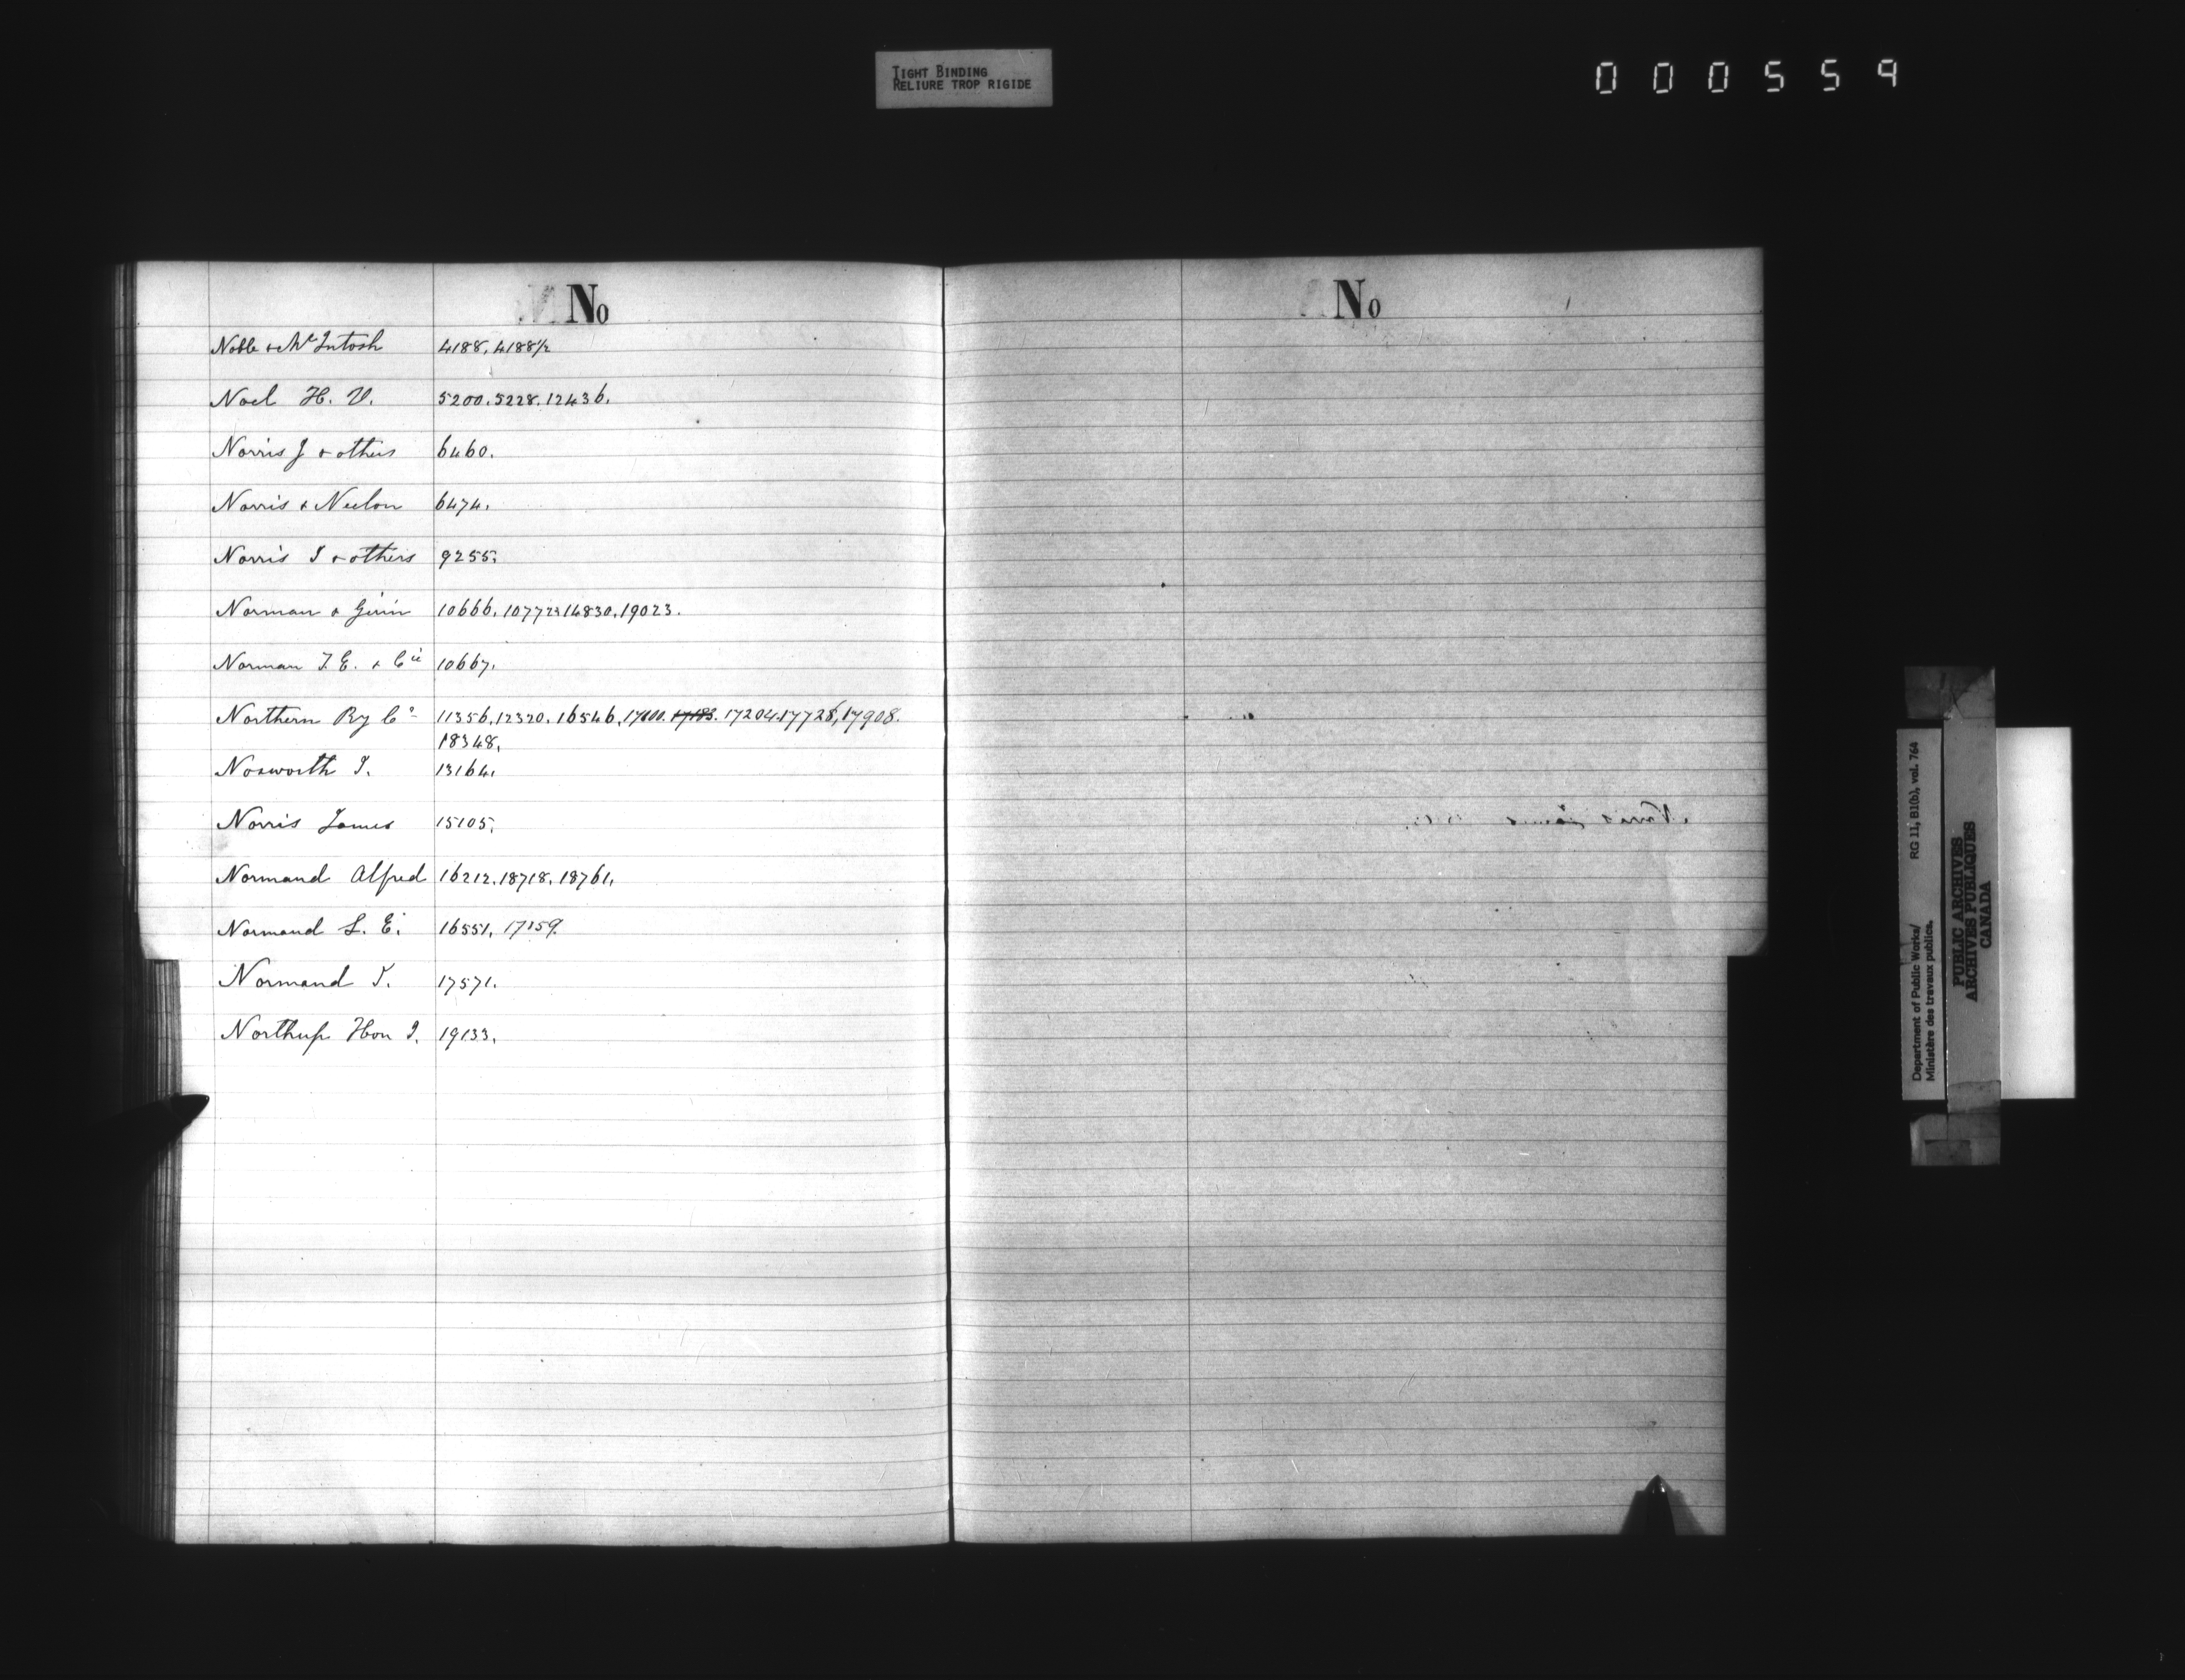 TIGHT BINDING
RELIURE TROP RIGIDE
000559
No
Noble & McIntosh 4188, 4188½
Noel H. V. 5200. 5228. 12436.
Norris J & others 6460.
Norris & Neelon 6474.
Norris J & others 9255.
Norman & 10666. 14830. 19023.
Norman T. E. & Cie 10667.
Northern Ry Co 11356. 12320. 16546. 17100. 17183. 17204. 17728, 17908.
18348.
Nosworth J. 13164.
Norris James 15105.
Normand Alfred 16212. 18718. 18761.
Normand L. E. 16551. 17159.
Normand T. 17571.
Northup Hon J. 19133.
No
Department of Public Works/ RG 11, B1(b), vol. 764
Ministère des travaux publics.
PUBLIC ARCHIVES
ARCHIVES PUBLIQUES
CANADA